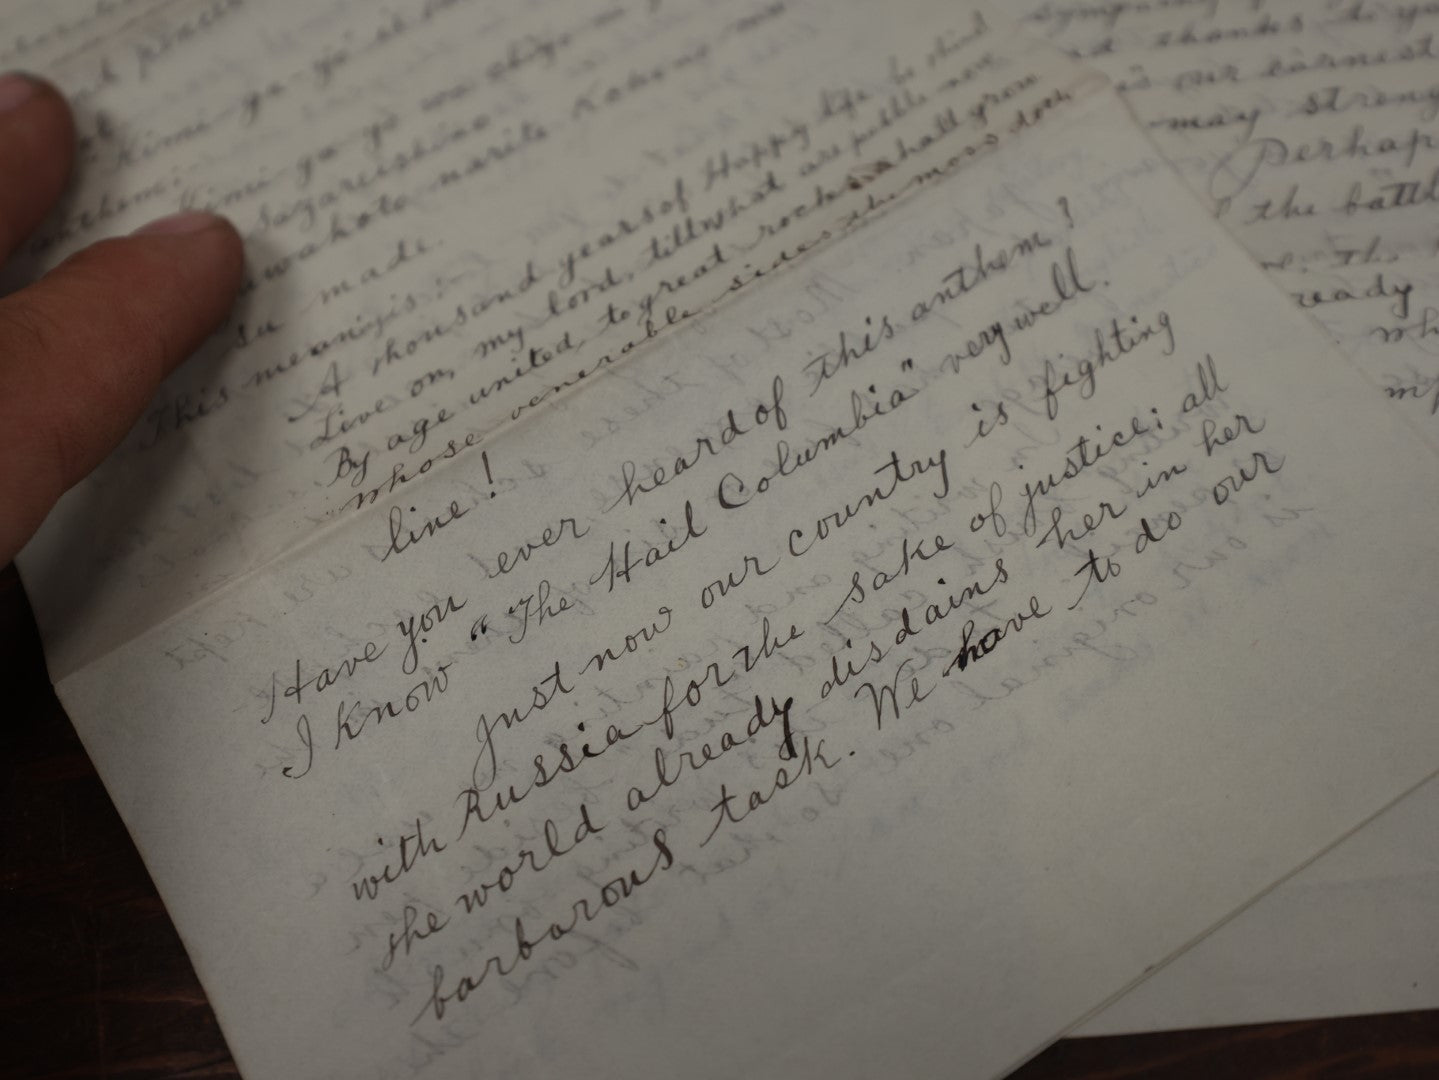 Kimi-ga-yo
anthem:
Kimi-ga-yo wa chiyo ni
Sazareishino
iwahoto narite Kokeno
su made.
This meaning is:
A thousand years of Happy life be thine!
Live on, my lord, till what are pebbles now
By age united, to great rocks shall grow
Whose venerable sides the moss doth
line!
Have you ever heard of this anthem?
I know "The Hail Columbia" very well.
Just now our country is fighting
with Russia for the sake of justice; all
the world already disdains her in her
barbarous task. We have to do our
thanks to
our earnest
may strong
Perhap
the battl
ready